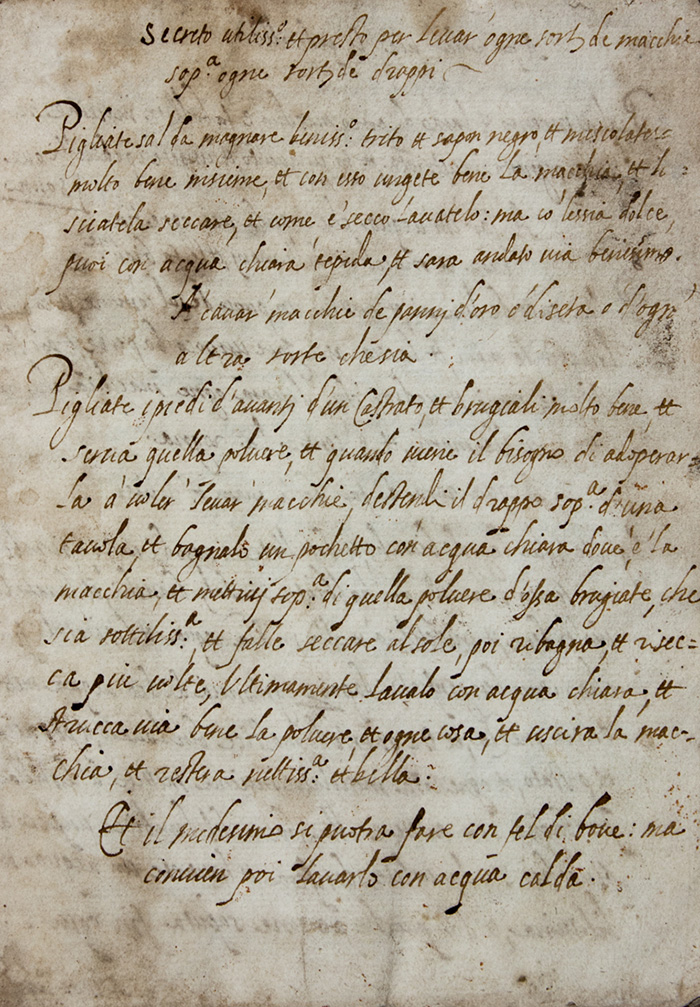 Secreto utiliss.o et presto per levar' ogne sorte de macchie
sop.a ogne sorte de drappi
Pigliate sal da magnare beniss.o trito et sapon negro, et miscolate=
molto bene insieme, et con esso ungete bene la macchia, et la=
sciatela seccare, et come è secco lavatelo: ma cō lessia dolce,
puoi con acqua chiara tepida, et sara andato via benissimo.
A' cavar' macchie de pannj d'oro o' di seta o d'ogn'
altra sorte che sia.
Pigliate i piedi d'avantj d'un Castrato, et brugiali molto bene, et
serva quella polvere, et quando viene il bisogno di adoperar=
la à voler' levar' macchie, destendi il drappo sop.a d'una
tavola, et bagnalo un pochetto con' acqua chiara dove è la
macchia, et mettivj sop.a di quella polvere d'ossa brugiate, che
sia sottiliss.a, et falle seccare al sole, poi ribagna, et risec-
ca più volte, Ultimamente lavalo con acqua chiara, et
strucca via bene la polvere, et ogne cosa, et uscira la mac-
chia, et restera nettiss.a et bella.
Et il medesimo si puotra fare con fel di bove: ma
convien poi lavarlo con acqua calda.